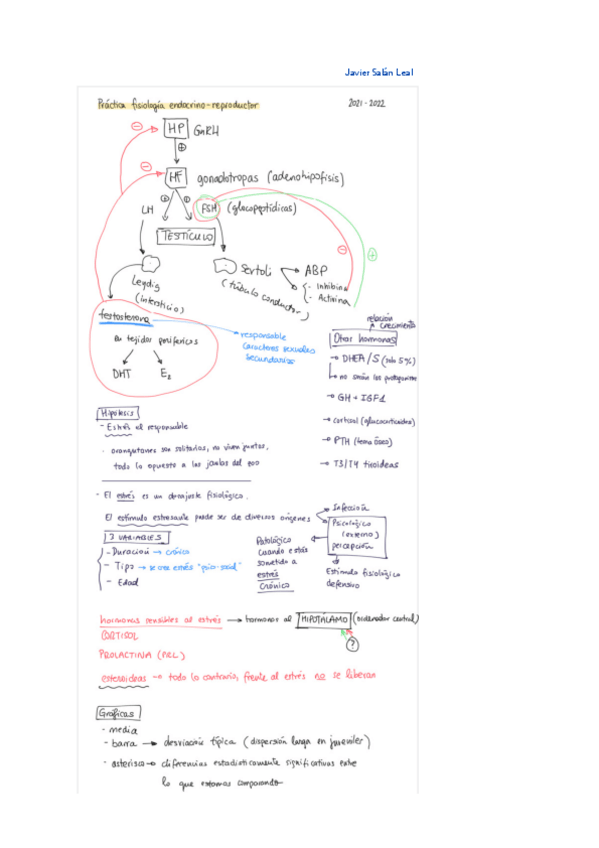 Javier Salán Leal
Práctica fisiología endocrino-reproductor 2021-2022
HP GnRH
HF gonadotropas (adenohipófisis)
LH FSH (glucopeptídicas)
TESTÍCULO
Leydig
(intersticio)
Sertoli
(túbulo conductor)
ABP
- Inhibina
- Activina
testosterona
en tejidos periféricos
DHT E2
responsable
caracteres sexuales
secundarios
relación
crecimiento
Otras hormonas
→ DHEA/S (solo 5%)
no serán las protagonistas
→ GH + IGF1
→ cortisol (glucocorticoides)
→ PTH (tema óseo)
→ T3/T4 tiroideas
Hipótesis
- Estrés el responsable
· orangutanes son solitarios, no viven juntos,
todo lo opuesto a las jaulas del zoo
- El estrés es un desajuste fisiológico.
El estímulo estresante puede ser de diversos orígenes
Infección
Psicológico
(externo)
percepción
Estímulo fisiológico
defensivo
Patológico
cuando estás
sometido a
estrés
crónico
3 VARIABLES
- Duración → crónico
- Tipo → se cree estrés "psico-social"
- Edad
hormonas sensibles al estrés → hormonas al HIPOTÁLAMO (ordenador central)
?
CORTISOL
PROLACTINA (PRL)
esteroideas → todo lo contrario, frente al estrés no se liberan
Gráficas
- media
- barra → desviación típica (dispersión larga en juveniles)
- asterisco → diferencias estadísticamente significativas entre
lo que estamos comparando